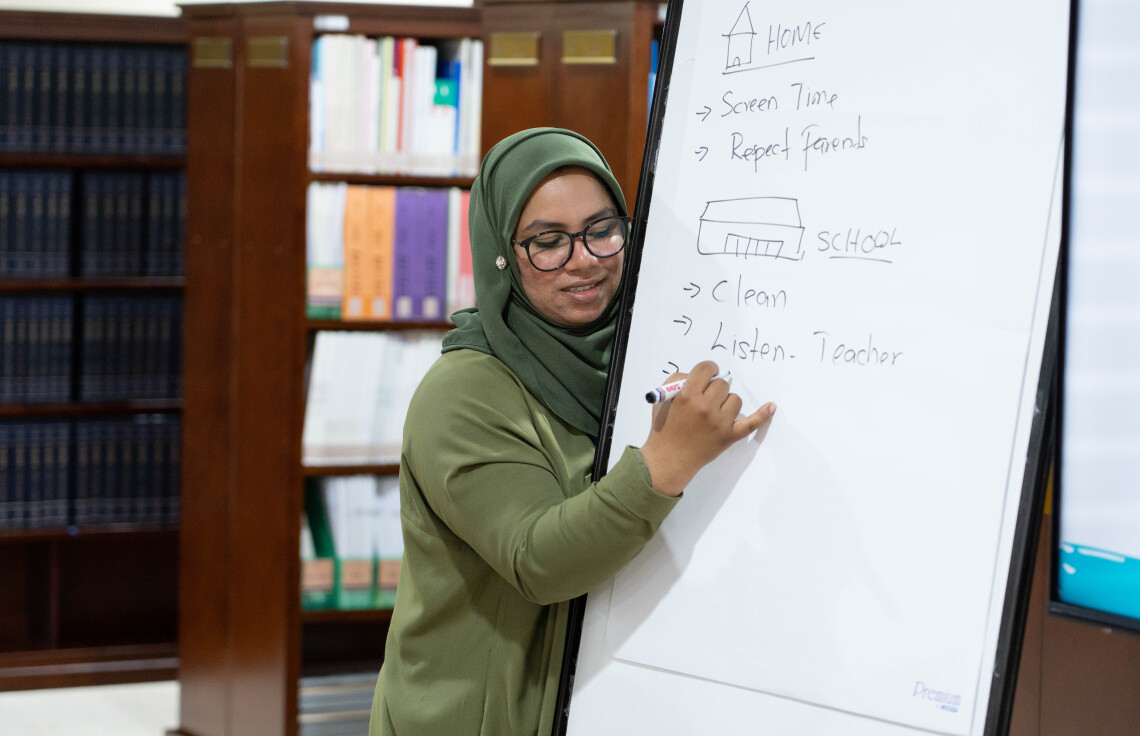 HOME
→ Screen Time
→ Respect Parents
SCHOOL
→ Clean
→ Listen. Teacher
→
500
Premium